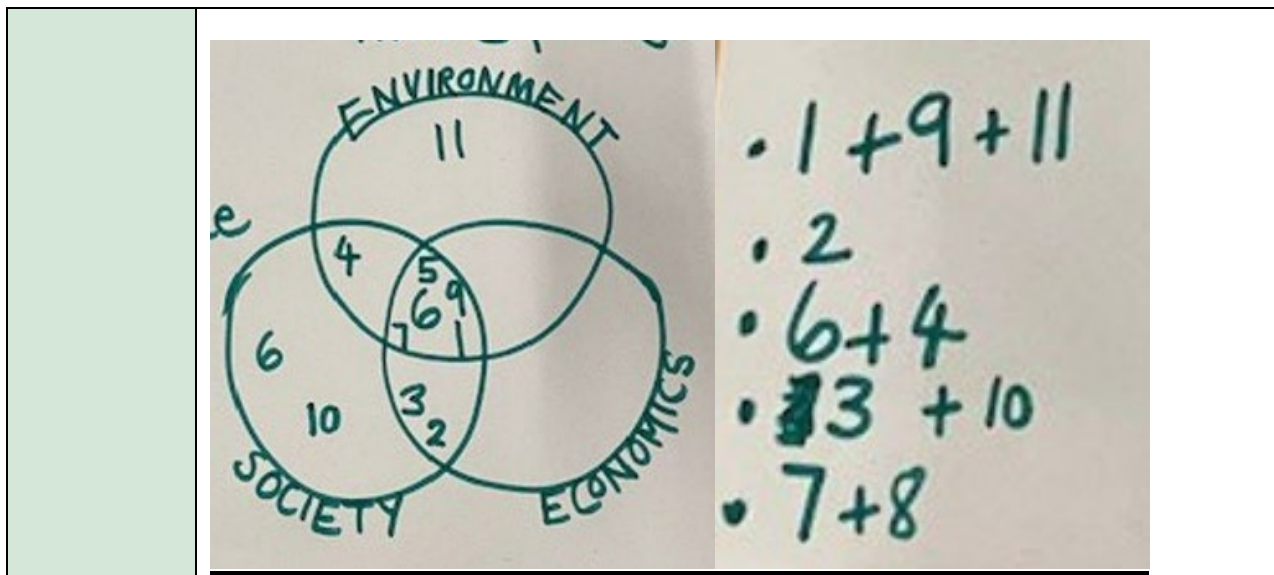 ENVIRONMENT
11
e
4
5
9
6
7 1
6
3
10
2
SOCIETY
ECONOMICS
• 1 + 9 + 11
• 2
• 6 + 4
• 3 + 10
• 7 + 8